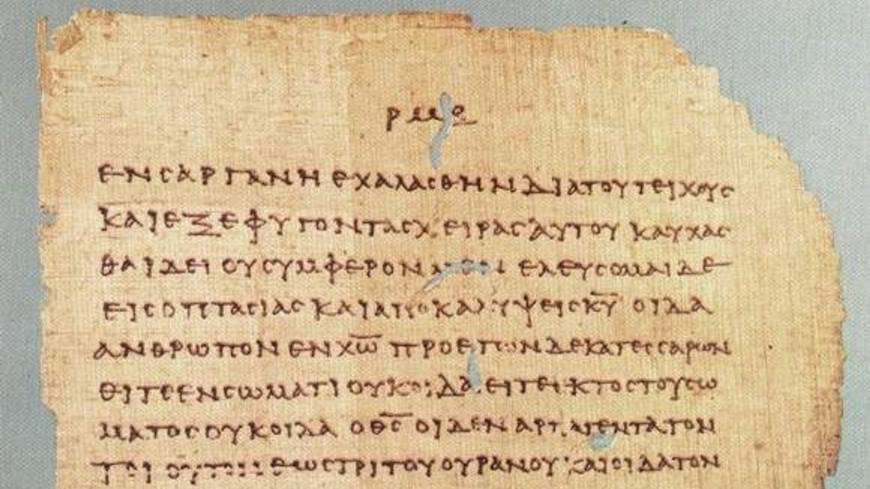 ΡΜΕ
ΕΝϹΑΡΓΑΝΗΕΧΑΛΑϹΘΗΝΔΙΑΤΟΥΤΕΙΧΟΥϹ
ΚΑΙΕΞΕΦΥΓΟΝΤΑϹΧΕΙΡΑϹΑΥΤΟΥΚΑΥΧΑϹ
ΘΑΙΔΕΙΟΥϹΥΜΦΕΡΟΝΜΕΝΕΛΕΥϹΟΜΑΙΔΕ
ΕΙϹΟΠΤΑϹΙΑϹΚΑΙΑΠΟΚΑΛΥΨΕΙϹΚ̅Υ̅ΟΙΔΑ
ΑΝΘΡΩΠΟΝΕΝΧ̅Ω̅ΠΡΟΕΤΩΝΔΕΚΑΤΕϹϹΑΡΩΝ
ΕΙΤΕΕΝϹΩΜΑΤΙΟΥΚΟΙΔΑΕΙΤΕΕΚΤΟϹΤΟΥϹΩ
ΜΑΤΟϹΟΥΚΟΙΔΑΟΘ̅Ϲ̅ΟΙΔΕΝΑΡΠΑΓΕΝΤΑΤΟΝ
ΤΟΙΟΥΤΟΝΕΩϹΤΡΙΤΟΥΟΥΡΑΝΟΥΚΑΙΟΙΔΑΤΟΝ